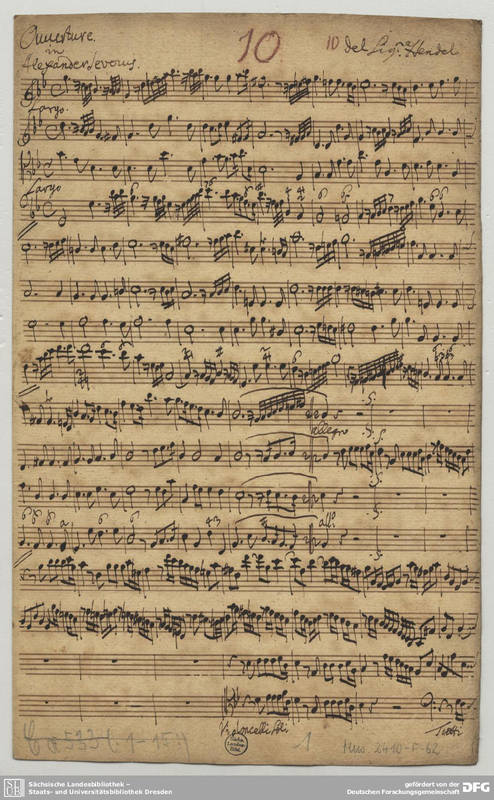 Ouverture.
10
10
del Sigre Hendel
in
Alexander Severus.
Largo.
Largo
allegro
allo
Violoncelli Soli.
Tutti
1
Mus. 2410-F-62
Sächsische Landesbibliothek –
Staats- und Universitätsbibliothek Dresden
gefördert von der
Deutschen Forschungsgemeinschaft
DFG